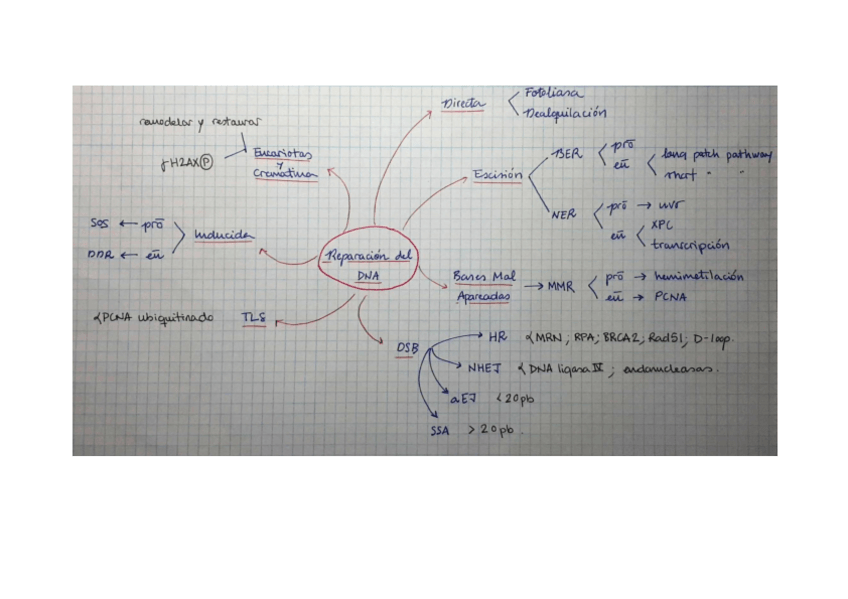 Reparación del
DNA
Directa
Fotoliasa
Dealquilación
Escisión
BER
prō
eū
long patch pathway
short " "
NER
prō → uvr
eū
XPC
transcripción
Bases Mal
Apareadas
→ MMR
prō → hemimetilación
eū → PCNA
DSB
HR
MRN ; RPA ; BRCA2 ; Rad51 ; D-loop.
NHEJ
DNA ligasa IV ; endonucleasas.
aEJ < 20pb
SSA > 20pb.
TLS
PCNA ubiquitinado
Inducida
SOS ← prō
DDR ← eū
Eucariotas
y
Cromatina
remodelar y restaurar
γH2AX P